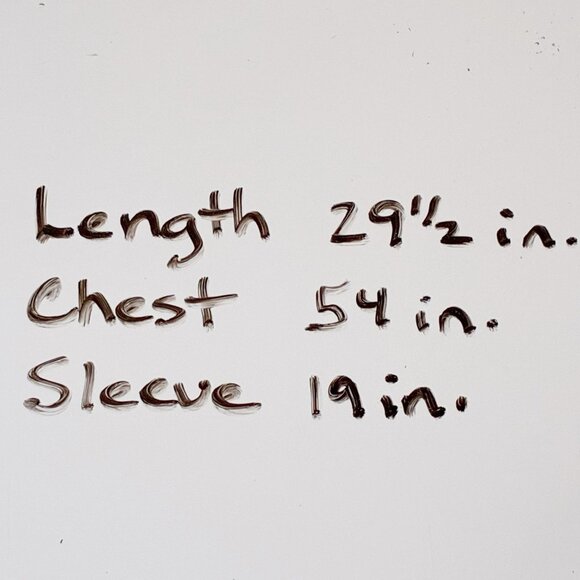 Length 29 1/2 in.
Chest 54 in.
Sleeve 19 in.